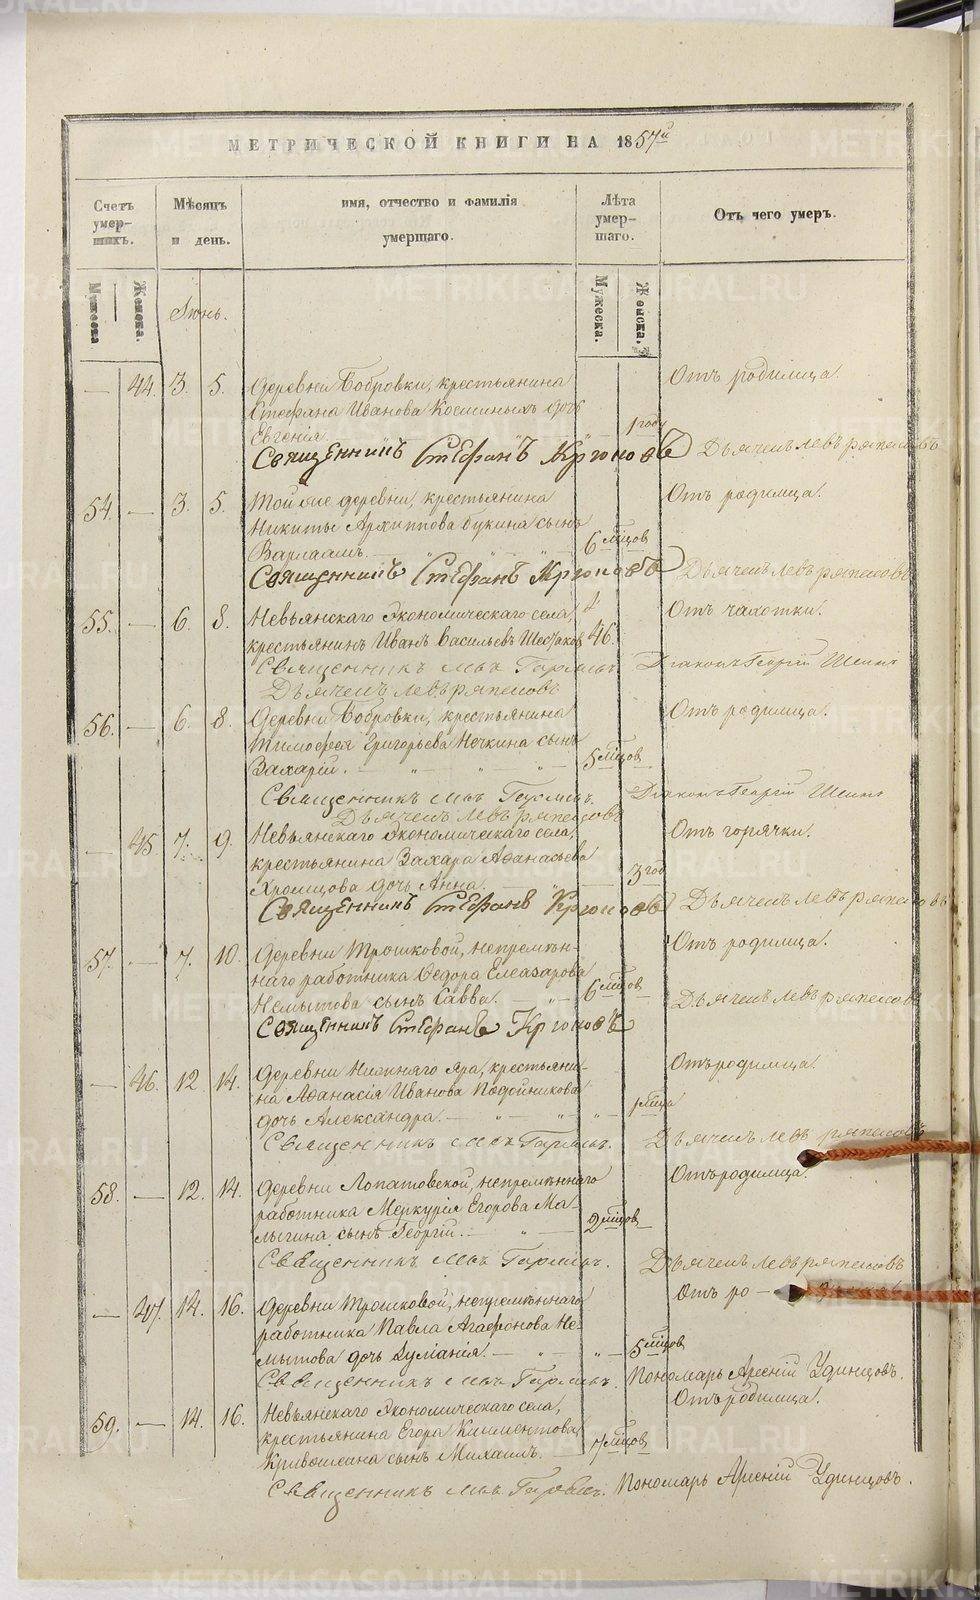 МЕТРИЧЕСКОЙ КНИГИ НА 1857й
Счетъ умершихъ.
Мѣсяцъ и день.
имя, отчество и фамилія умершаго.
Лѣта умершаго.
Отъ чего умеръ.
Мужеска
Женска.
Іюнь.
Мужеска.
Женска.
— 44. 3. 5. Деревни Бобровки, крестьянина Отъ родимца.
Стефана Иванова Костиныхъ дочь
Евгенія. 1 году
Священникъ Стефанъ Дьячекъ Левъ
54. — 3. 5. Той же деревни, крестьянина Отъ родимца.
Никиты Архиппова Букина сынъ
Варлаамъ. 6 мѣсцов
Священникъ Стефанъ Дьячекъ Левъ
55. — 6. 8. Невьянскаго Экономическаго села, Отъ чахотки.
крестьянинъ Иванъ Васильевъ 46.
Священникъ Діаконъ Георгій
Дьячекъ Левъ
56. — 6. 8. Деревни Бобровки, крестьянина Отъ родимца.
Тимофея Григорьева Нечкина сынъ
Захарій. 5 мѣсцов
Священникъ Діаконъ Георгій
Дьячекъ Левъ
— 45 7. 9. Невьянскаго Экономическаго села, Отъ горячки.
крестьянина Захара Аѳанасьева
Хромцова дочь Анна. 3 год
Священникъ Стефанъ Дьячекъ Левъ
57. — 7. 10. Деревни Трошковой, непремѣн- Отъ родимца.
наго работника Ѳедора Елеазарова
Немытова сынъ Савва. 6 мѣсцов
Дьячекъ Левъ
Священникъ Стефанъ
— 46. 12. 14. Деревни Нижняго Яра, крестьяни- Отъ родимца.
на Аѳанасія Иванова Подойникова
дочь Александра. 1 мѣсца
Священникъ Дьячекъ Левъ
58. — 12. 14. Деревни Лопатовской, непремѣннаго Отъ родимца.
работника Меркурія Егорова Ма-
лыгина сынъ Георгій. 2 мѣсцов
Священникъ Дьячекъ Левъ
— 47. 14. 16. Деревни Трошковой, непремѣннаго Отъ ро-
работника Павла Агафонова Не-
мытова дочь Іуліанія. 5 мѣсцов
Священникъ Пономарь Арсеній Удинцовъ.
59. — 14. 16. Невьянскаго Экономическаго села, Отъ родимца.
крестьянина Егора Климентова
Кривошеина сынъ Михаилъ. 7 мѣсцов
Священникъ Пономарь Арсеній Удинцовъ.
METRIKI.GASO-URAL.RU